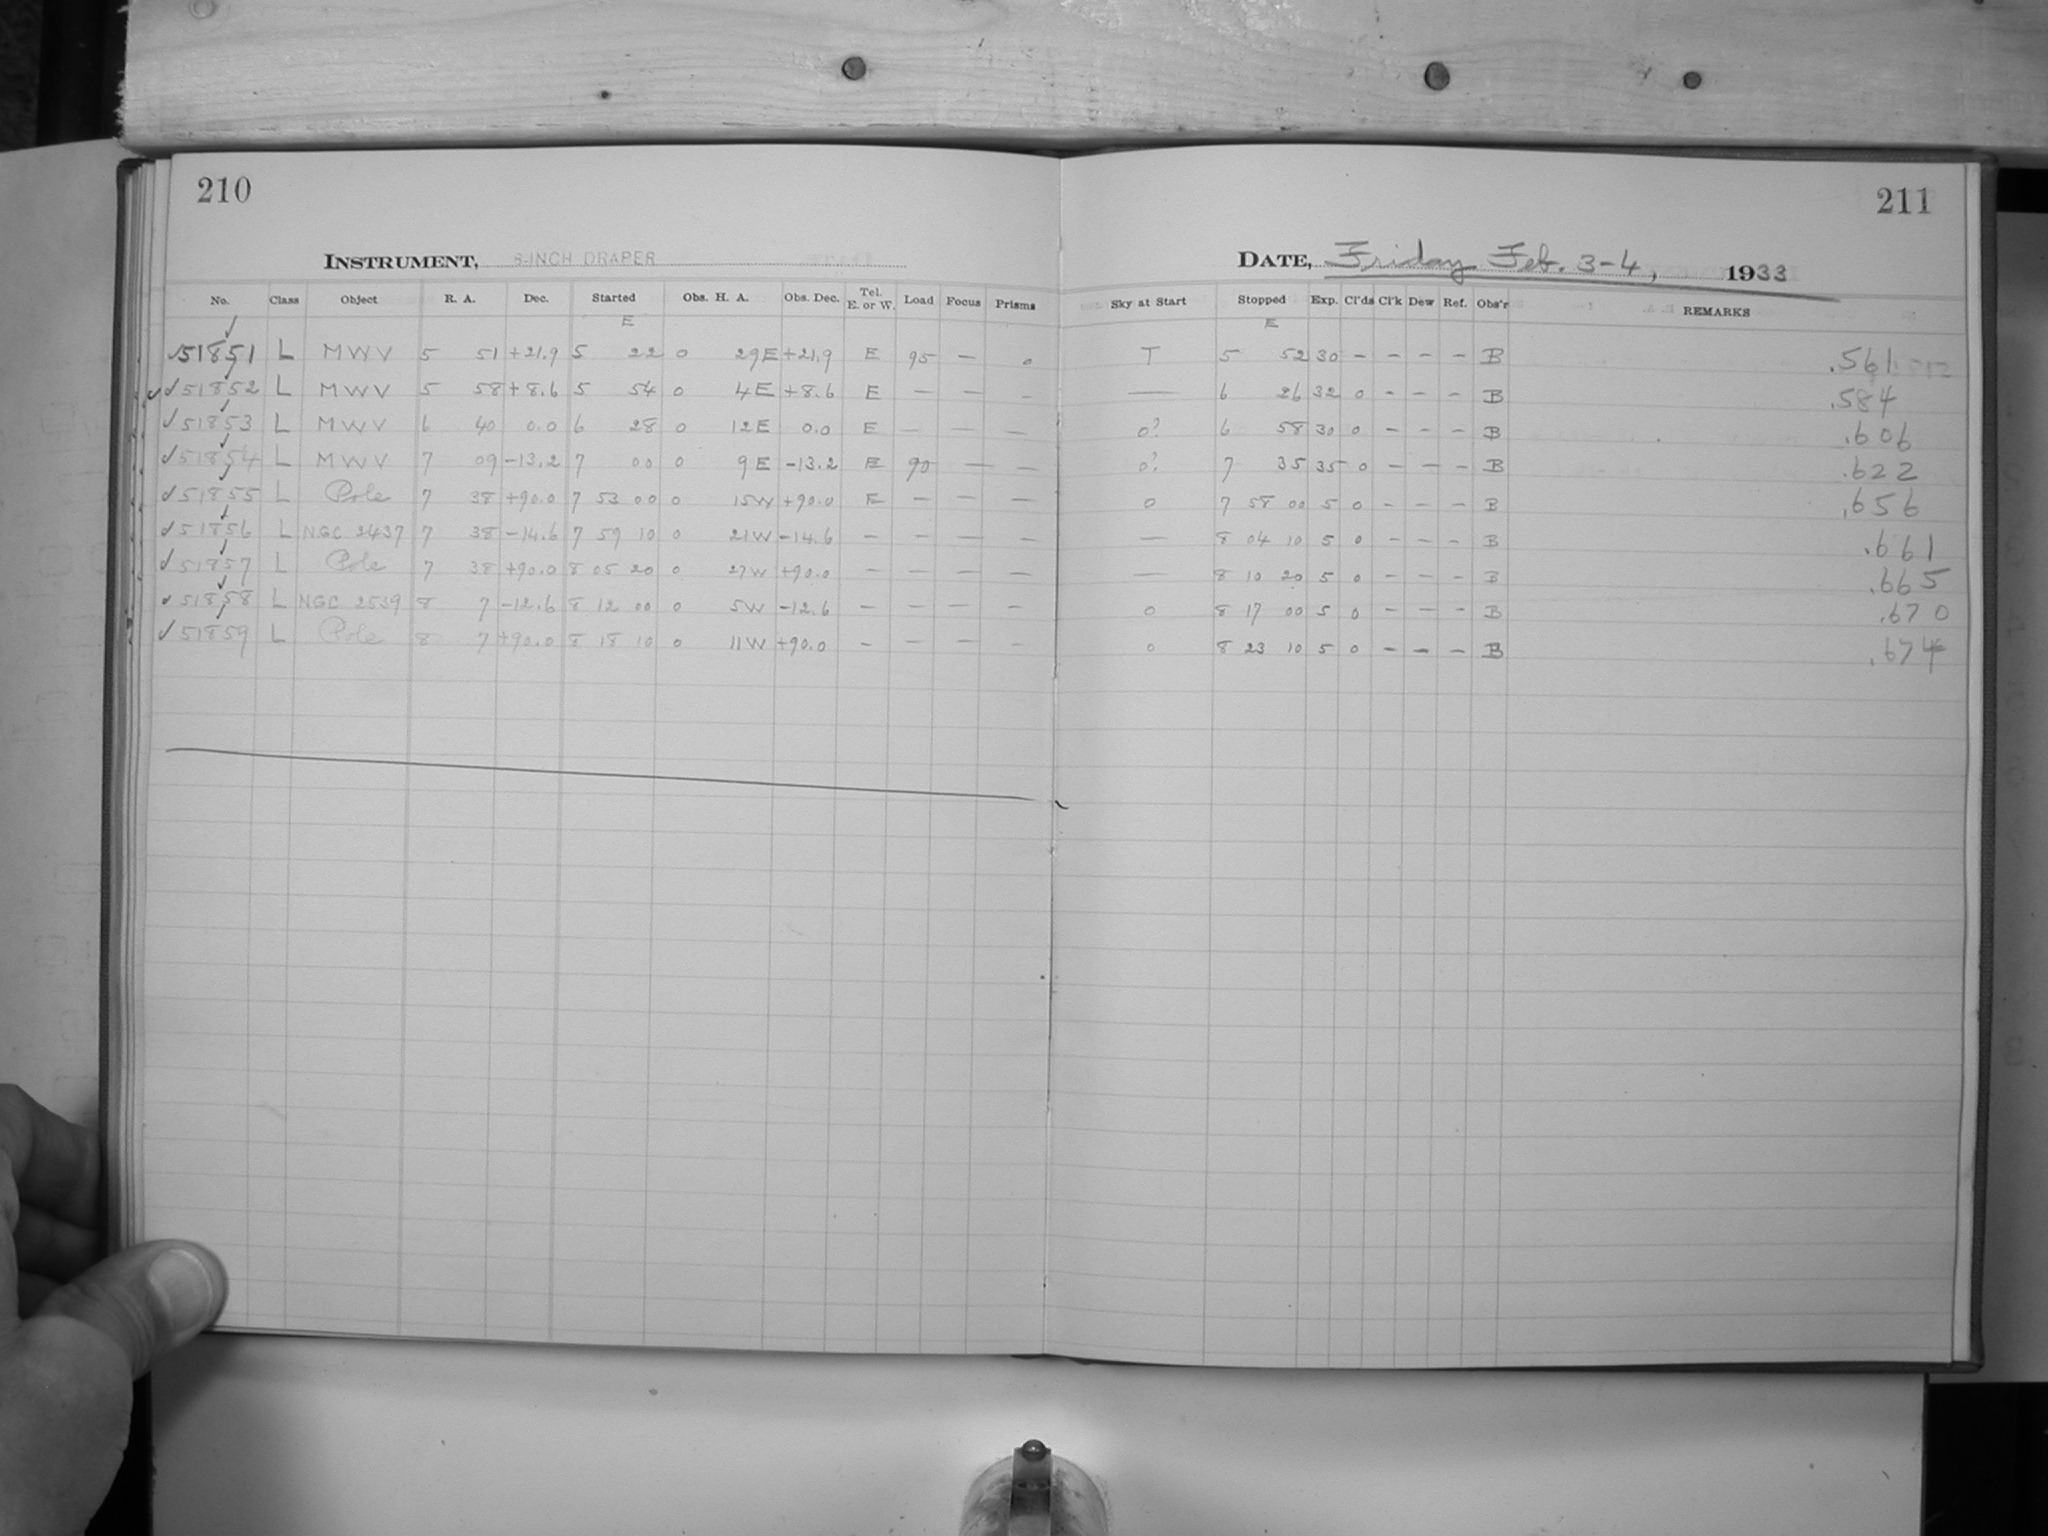 210
INSTRUMENT, 8-INCH DRAPER
No. Class Object R. A. Dec. Started Obs. H. A. Obs. Dec. Tel. E. or W. Load Focus Prisms
E
51851 L MWV 5 51 +21.9 5 22 0 29E +21.9 E 95 — 0
51852 L MWV 5 58 +8.6 5 54 0 4E +8.6 E — — —
51853 L MWV 6 40 0.0 6 28 0 12E 0.0 E — — —
51854 L MWV 7 09 -13.2 7 00 0 9E -13.2 E 90 — —
51855 L Pole 7 38 +90.0 7 53 00 0 15W +90.0 E — — —
51856 L NGC 2437 7 38 -14.6 7 59 10 0 21W -14.6 — — — —
51857 L Pole 7 38 +90.0 8 05 20 0 27W +90.0 — — — —
51858 L NGC 2539 8 7 -12.6 8 12 00 0 5W -12.6 — — — —
51859 L Pole 8 7 +90.0 8 18 10 0 11W +90.0 — — — —
211
DATE, Friday Feb. 3-4, 1933
Sky at Start Stopped Exp. Cl'ds Cl'k Dew Ref. Obs'r REMARKS
E
T 5 52 30 – – – – B .561
— 6 26 32 0 – – – B .584
0? 6 58 30 0 – – – B .606
0? 7 35 35 0 – – – B .622
0 7 58 00 5 0 – – – B .656
— 8 04 10 5 0 – – – B .661
— 8 10 20 5 0 – – – B .665
0 8 17 00 5 0 – – – B .670
0 8 23 10 5 0 – – – B .674